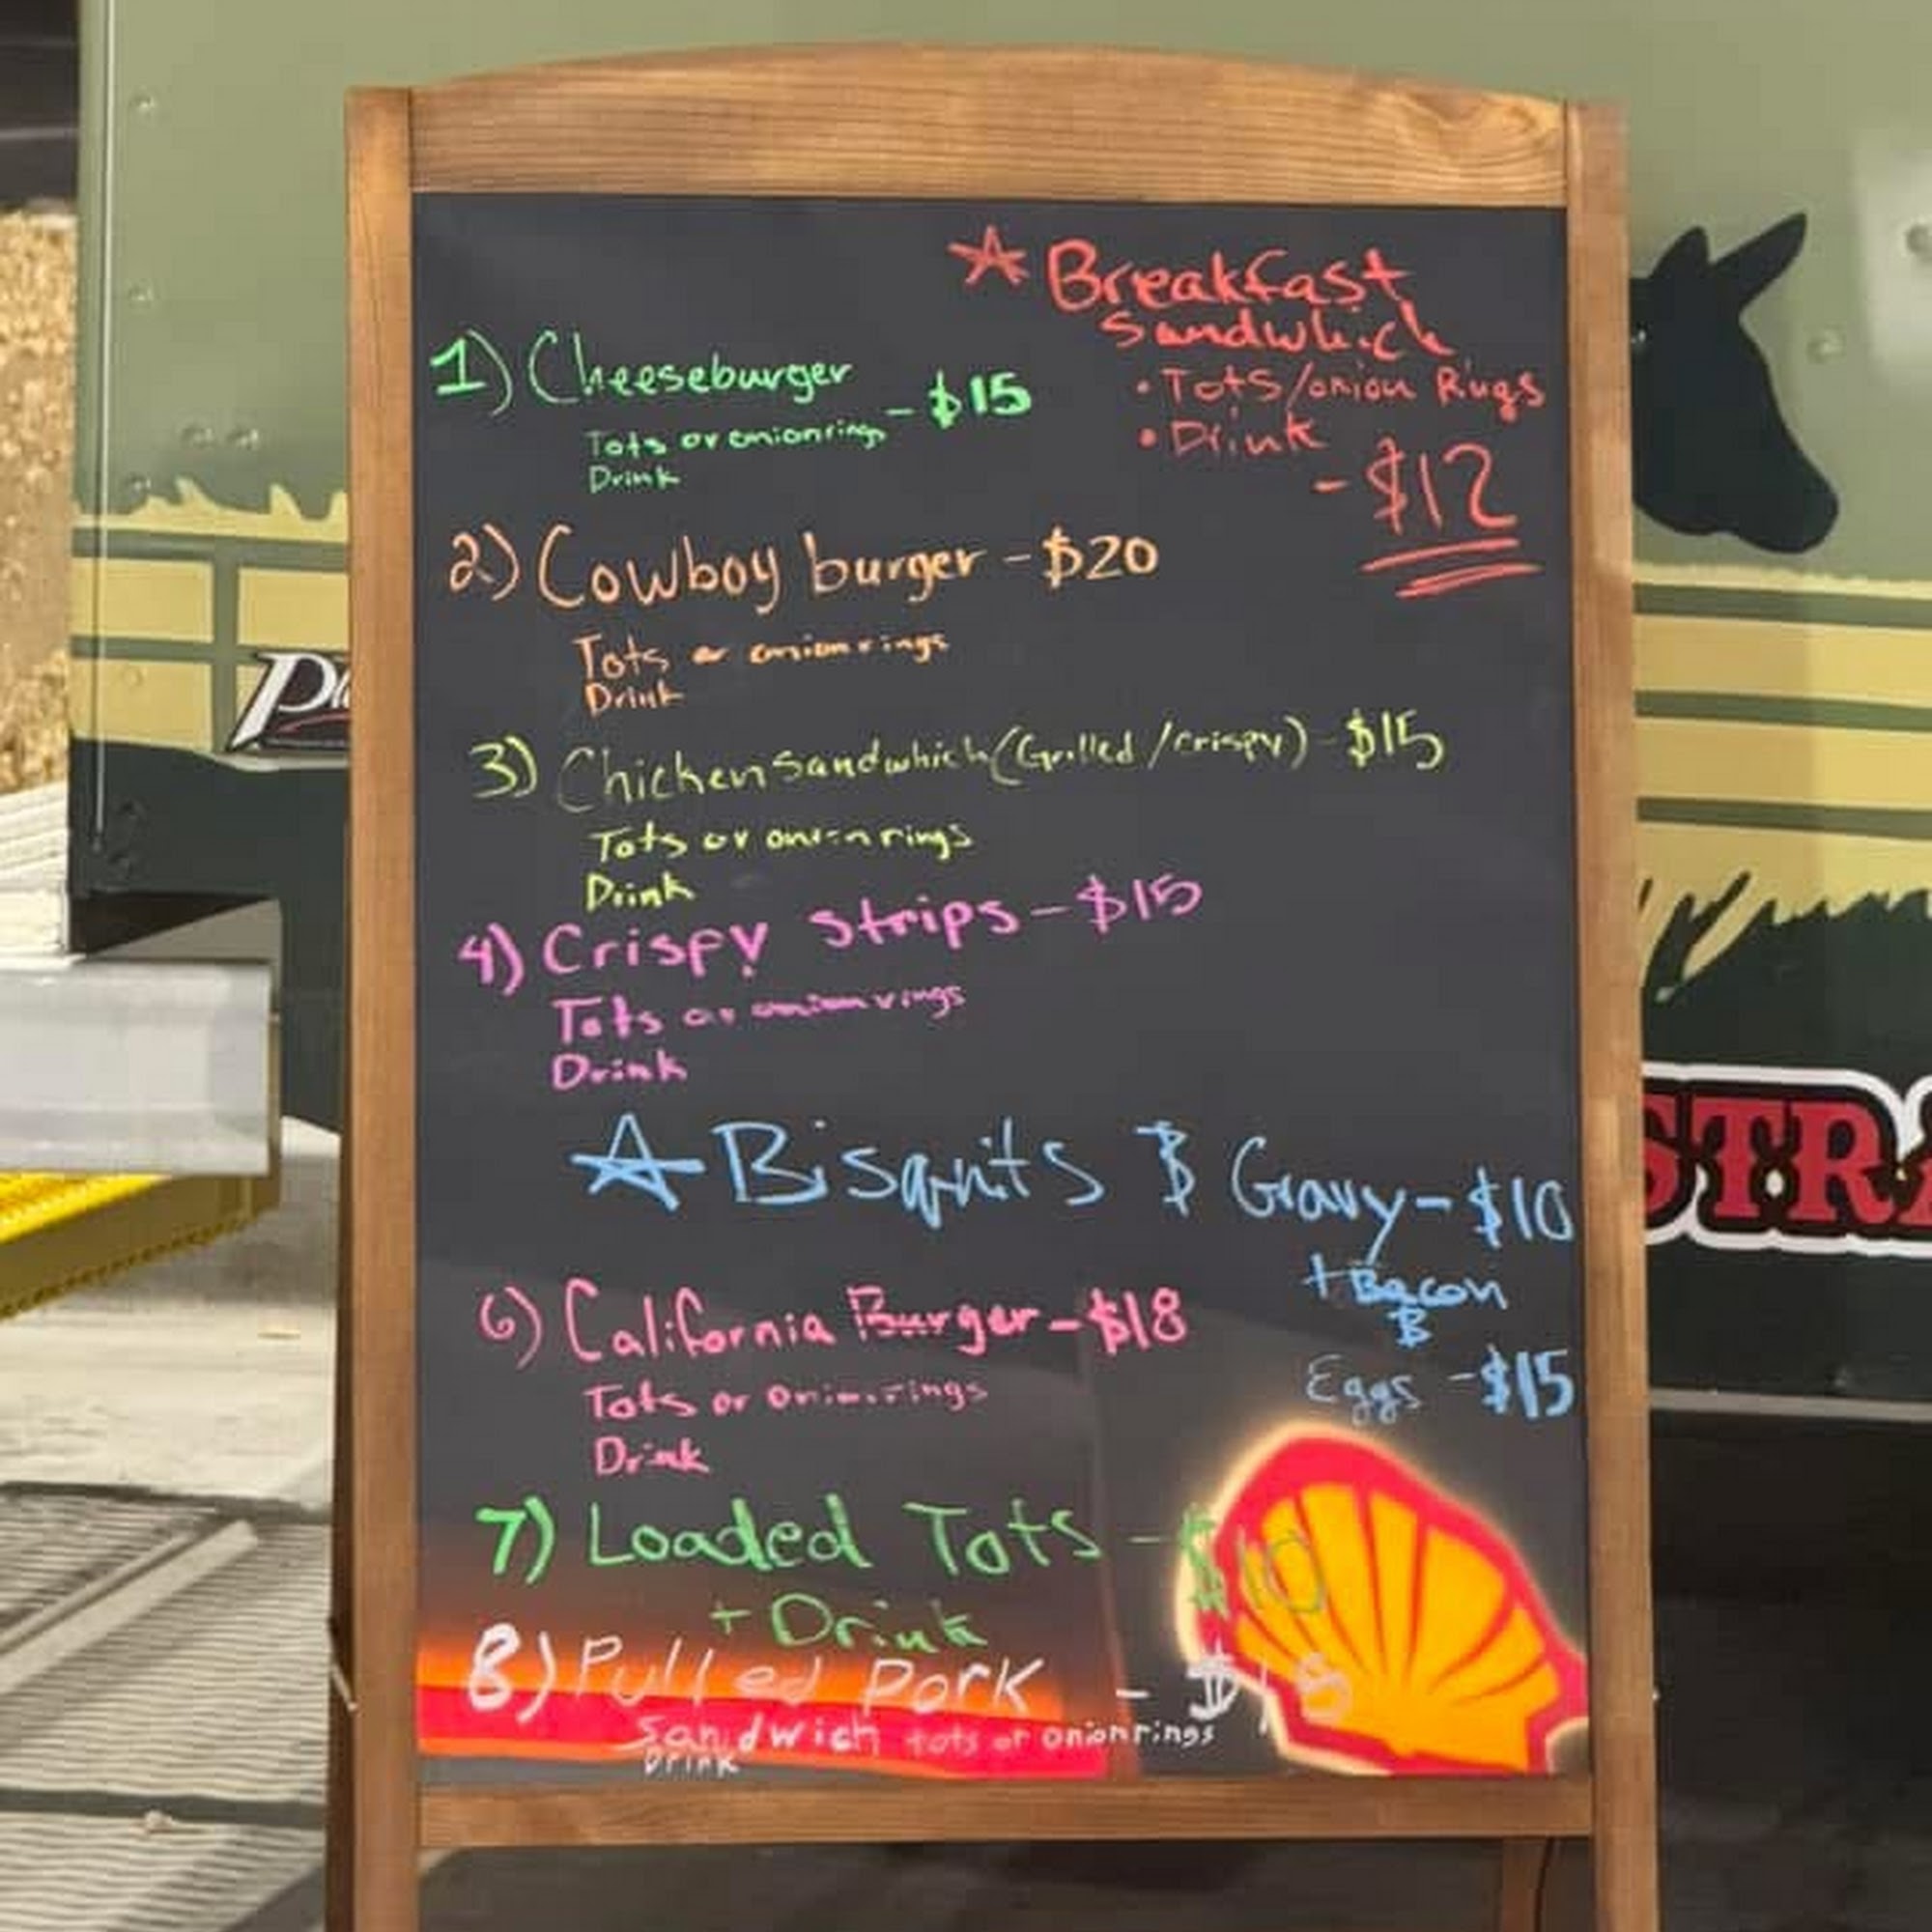 ☆ Breakfast
Sandwhich
• Tots/onion Rings
• Drink
- $12
1) Cheeseburger - $15
Tots or onion rings
Drink
2) Cowboy burger - $20
Tots or onion rings
Drink
3) Chicken Sandwhich (Grilled / crispy) - $15
Tots or onion rings
Drink
4) Crispy Strips - $15
Tots or onion rings
Drink
☆ Bisquits & Gravy - $10
+ Bacon
&
Eggs - $15
6) California Burger - $18
Tots or Onion rings
Drink
7) Loaded Tots - $10
+ Drink
8) Pulled Pork - $18
Sandwich tots or onion rings
Drink
STRA